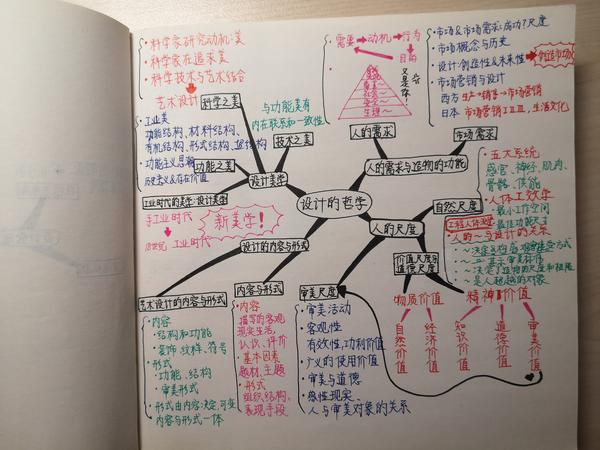 ·科学家研究动机:美
·科学家在追求美
·科学技术与艺术结合
艺术设计
科学之美
与功能美有
内在联系和一致性
技术之美
·工业美
功能结构、材料结构、
有机结构、形式结构
·功能主义思潮
历史意义&存在价值
功能之美
设计美学
工业时代的美学:设计美学
手工业时代
工业时代
新美学!
设计的哲学
需要→动机→行为
目的
人的需求
人的需求与造物的功能
市场需求
·市场&市场需求:成功?尺度
·市场概念与历史
·设计:创造性&未来性→创造市场
·市场营销与设计
西方 生产→销售→市场营销
日本 市场营销
生活文化
自然尺度
·五大系统
感官、神经、肌肉、
骨骼、供能
·人体工效学
·最小工作空间
·最佳功能尺寸
工程人体测量
·人的~与设计的关系
·是人超越的对象
人的尺度
价值尺度与
道德尺度
物质价值
自然价值
经济价值
精神价值
知识价值
道德价值
审美价值
审美尺度
·审美活动
·客观性
有效性,功利价值
·广义的使用价值
·审美与道德
·感性现实、
人与审美对象的关系
设计的内容与形式
内容与形式
·内容
描写的客观
现实生活,
认识、评价
·基本因素
题材、主题
·形式
组织结构,
表现手段
艺术设计的内容与形式
·内容
·结构和功能
·装饰、纹样、符号
·形式
·功能、结构
·审美形式
·形式由内容决定,可变
·内容与形式一体